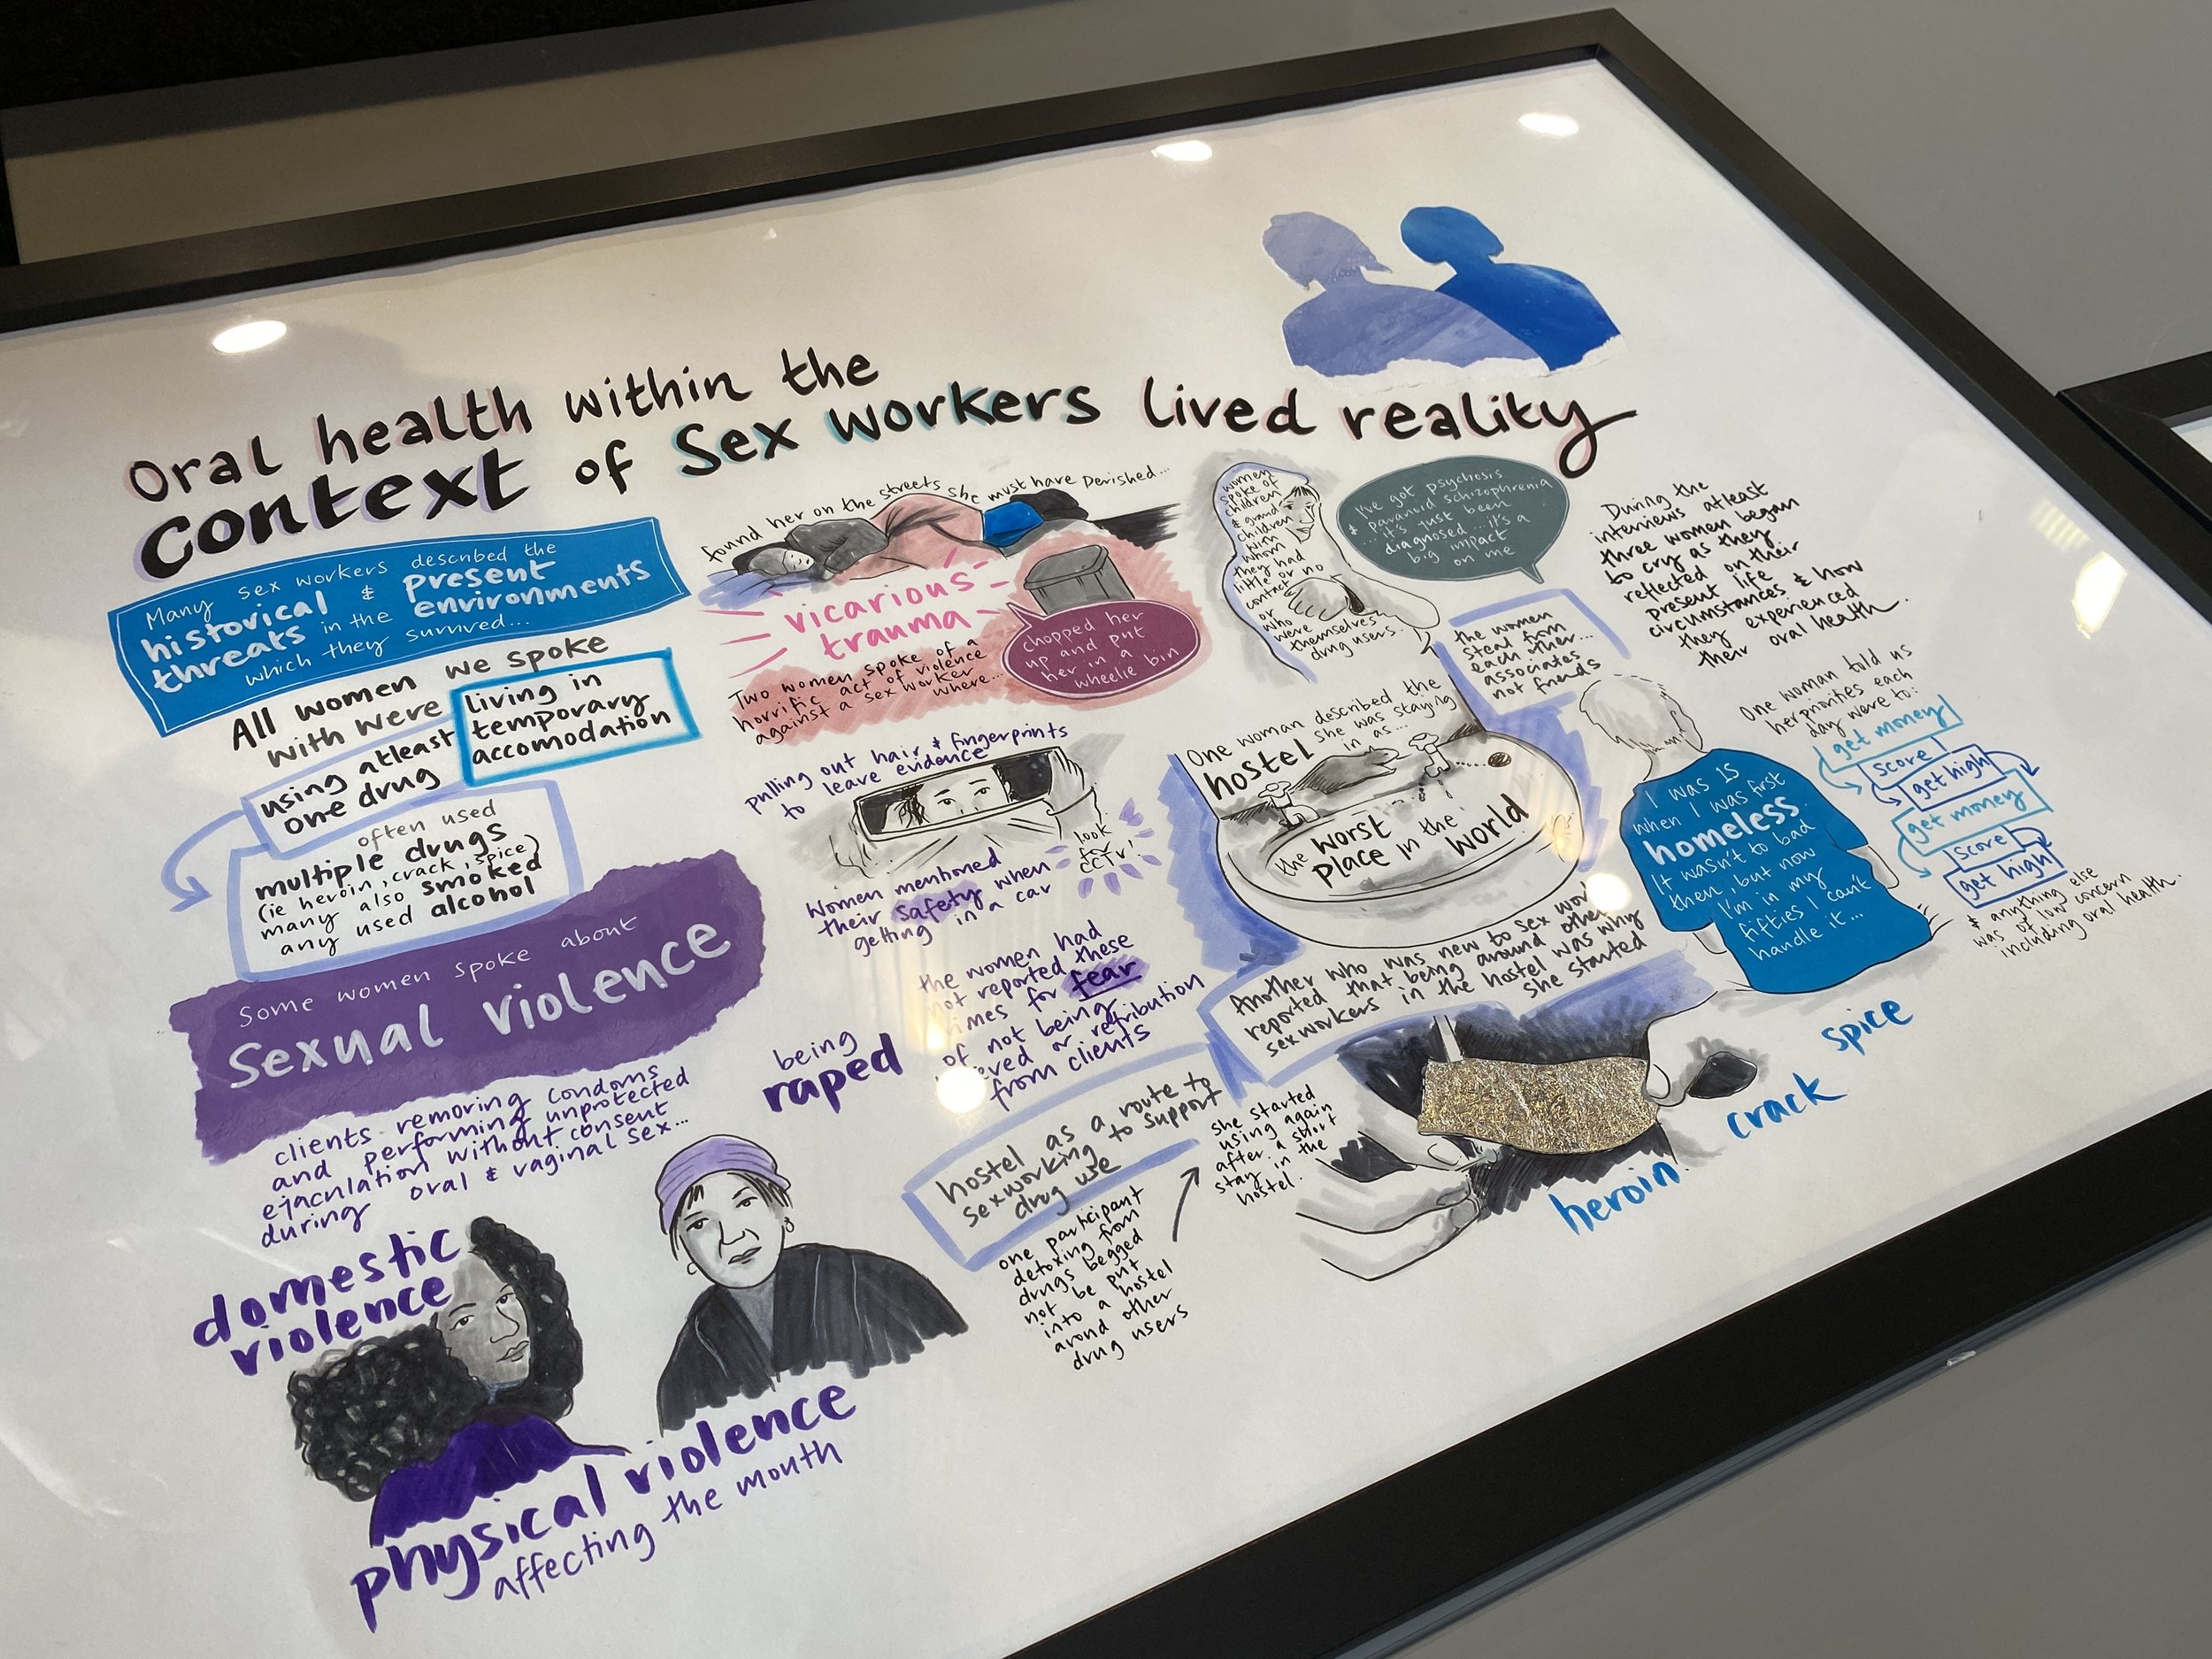 Oral health within the
context of Sex workers lived reality
Many sex workers described the
historical & present
threats in the environments
which they survived...
All women we spoke
with were living in
temporary
accomodation
using atleast
one drug
often used
multiple drugs
(ie heroin, crack, spice)
many also smoked
any used alcohol
Some women spoke about
Sexual violence
clients removing condoms
and performing unprotected
ejaculation without consent
during oral & vaginal sex...
domestic
violence
physical violence
affecting the mouth
being
raped
found her on the streets she must have perished...
vicarious
trauma
Two women spoke of a
horrific act of violence
against a sex worker
where...
chopped her
up and put
her in a
wheelie bin
pulling out hair & fingerprints
to leave evidence
look
for
CCTV!
Women mentioned
their safety when
getting in a car
the women had
not reported these
for fear
of not being
or retribution
from clients
hostel as a route to
sexworking to support
drug use
one participant
detoxing from
drugs begged
not be put
into a hostel
arond other
drug users
she started
using again
after a short
stay in the
hostel.
women
spoke of
children
& grand
children
with
whom
they had
little or no
contact
or
who
were
themselves
drug users.
I've got psychosis
& paranoid schizophrenia
... it's just been
diagnosed... it's a
big impact
on me
the women
steal from
each other...
associates
not friends
One woman described the
hostel she was staying
in as...
the worst
place in the
world
Another who was new to sex
reported that being around other
sexworkers in the hostel was why
she started
During the
interviews atleast
three women began
to cry as they
reflected on their
present life
circumstances & how
they experienced
their oral health.
I was 15
when I was first
homeless.
It wasn't to bad
then, but now
I'm in my
fifties I can't
handle it...
One woman told us
her priorities each
day were to:
get money
score
get high
get money
score
get high
& anything else
was of low concern
including oral health.
spice
crack
heroin